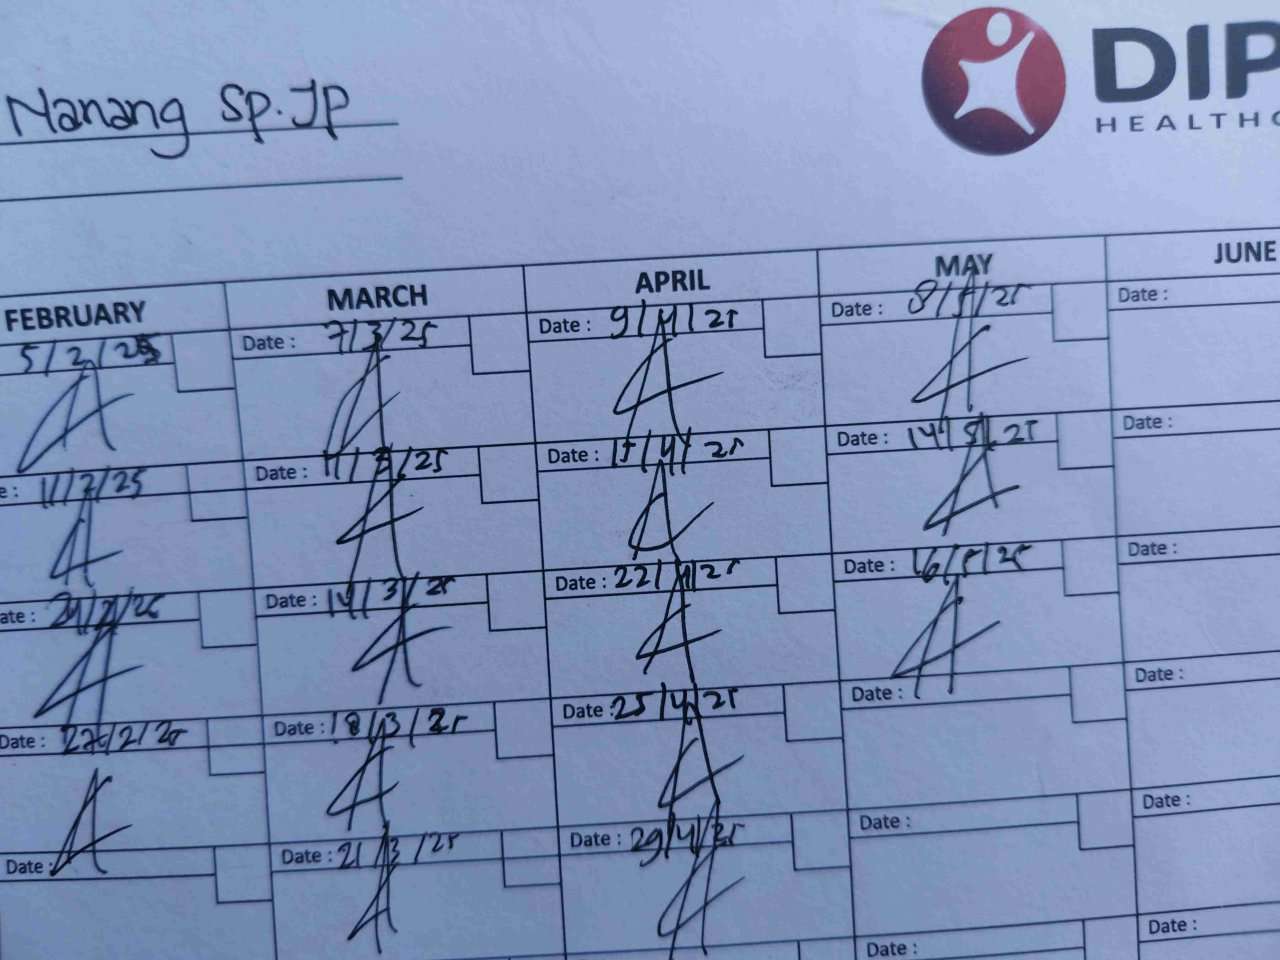 Nanang Sp.JP
DIP
HEALTHC
FEBRUARY MARCH APRIL MAY JUNE
5/2/25 Date : 7/3/25 Date : 9/4/25 Date : 8/5/25 Date :
e : 11/2/25 Date : 11/3/25 Date : 15/4/25 Date : 14/5/25 Date :
ate : Date : 14/3/25 Date : 22/4/25 Date : 16/5/25 Date :
Date : 27/2/25 Date : 18/3/25 Date : 25/4/25 Date : Date :
Date : Date : 21/3/25 Date : 29/4/25 Date : Date :
Date : Date :